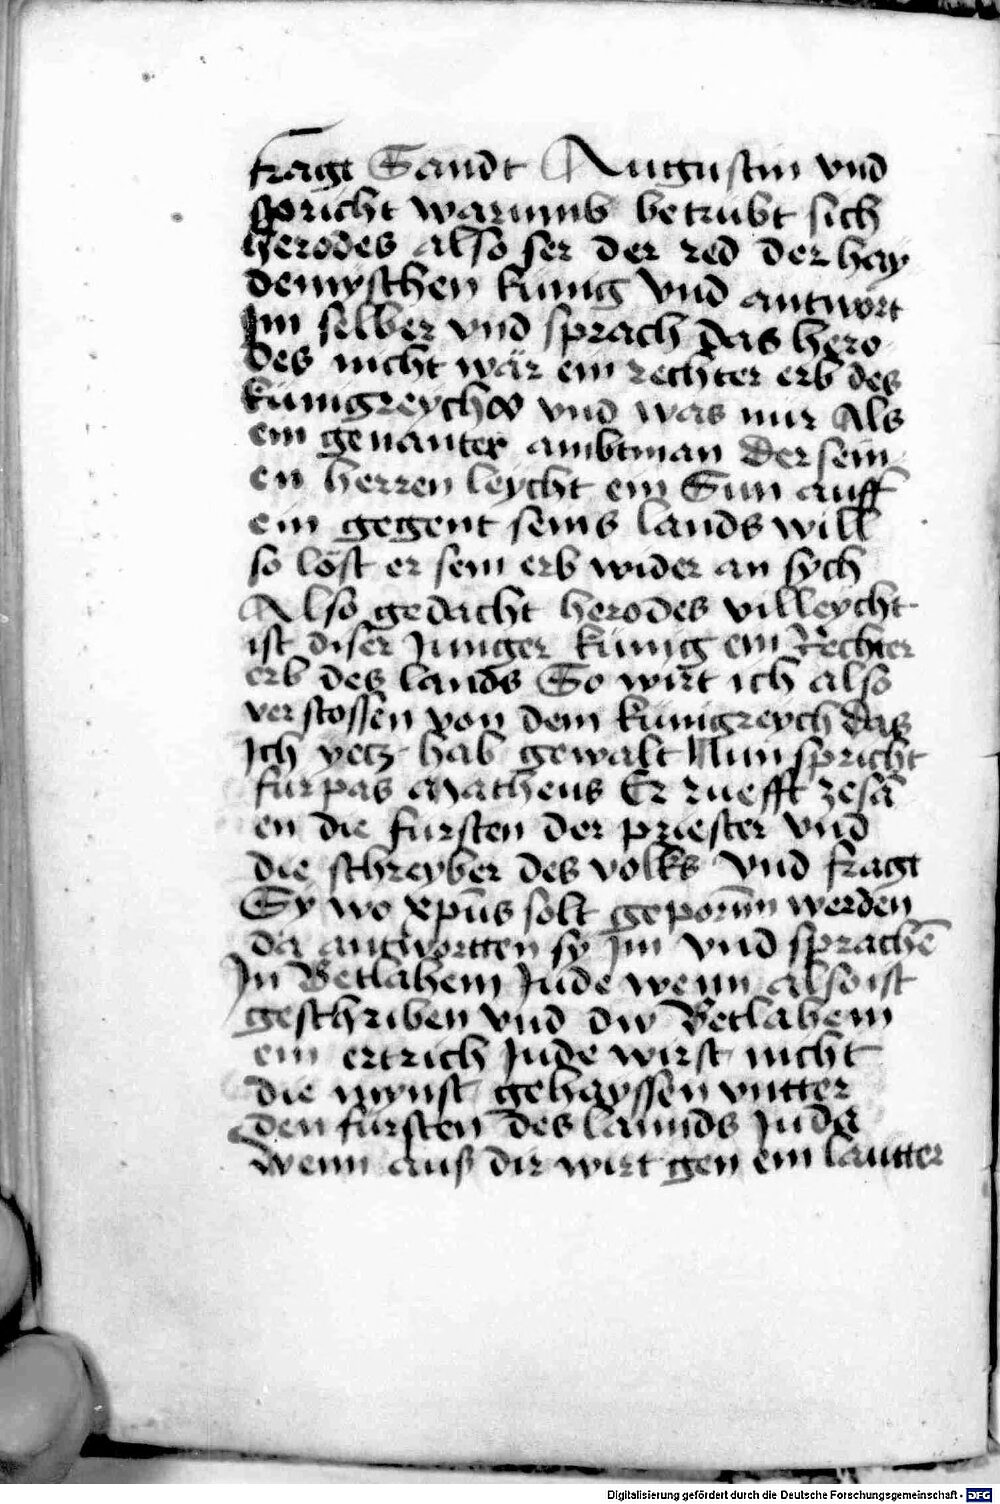 fragt Sandt Augustin vnd
spricht warumb betrubt sich
herodes also ser der red der hay
denyschen kunig Vnd antwort
Im selber vnd sprach das hero
des nicht wär ein rechter erb des
kunigreychs vnd was nur Als
ein genanter ambtman Der sein
en herren leycht ein Sun auff
ein gegent seins lands will
so löst er sein erb wider an sych
Also gedacht herodes villeycht
ist diser Junger kunig ein Rechter
erb des lands So wirt ich also
verstossen von dem kunigreych das
Ich yetz hab gewalt Nun spricht
furpas Matheus Er ruefft zesā
en die fursten der priester vnd
die schreyber des volks Vnd fragt
Sy wo xpūs solt geporn̄n werden
da antwortten sy Im vnd sprachē
In Betlahem Jude wenn also ist
geschriben Vnd dw Betlahem
ein ertrich Jude wirst nicht
die mynst gehayssen vntter
den fursten des lannds Juda
wenn auß dir wirt gen ein lautter
Digitalisierung gefördert durch die Deutsche Forschungsgemeinschaft - DFG